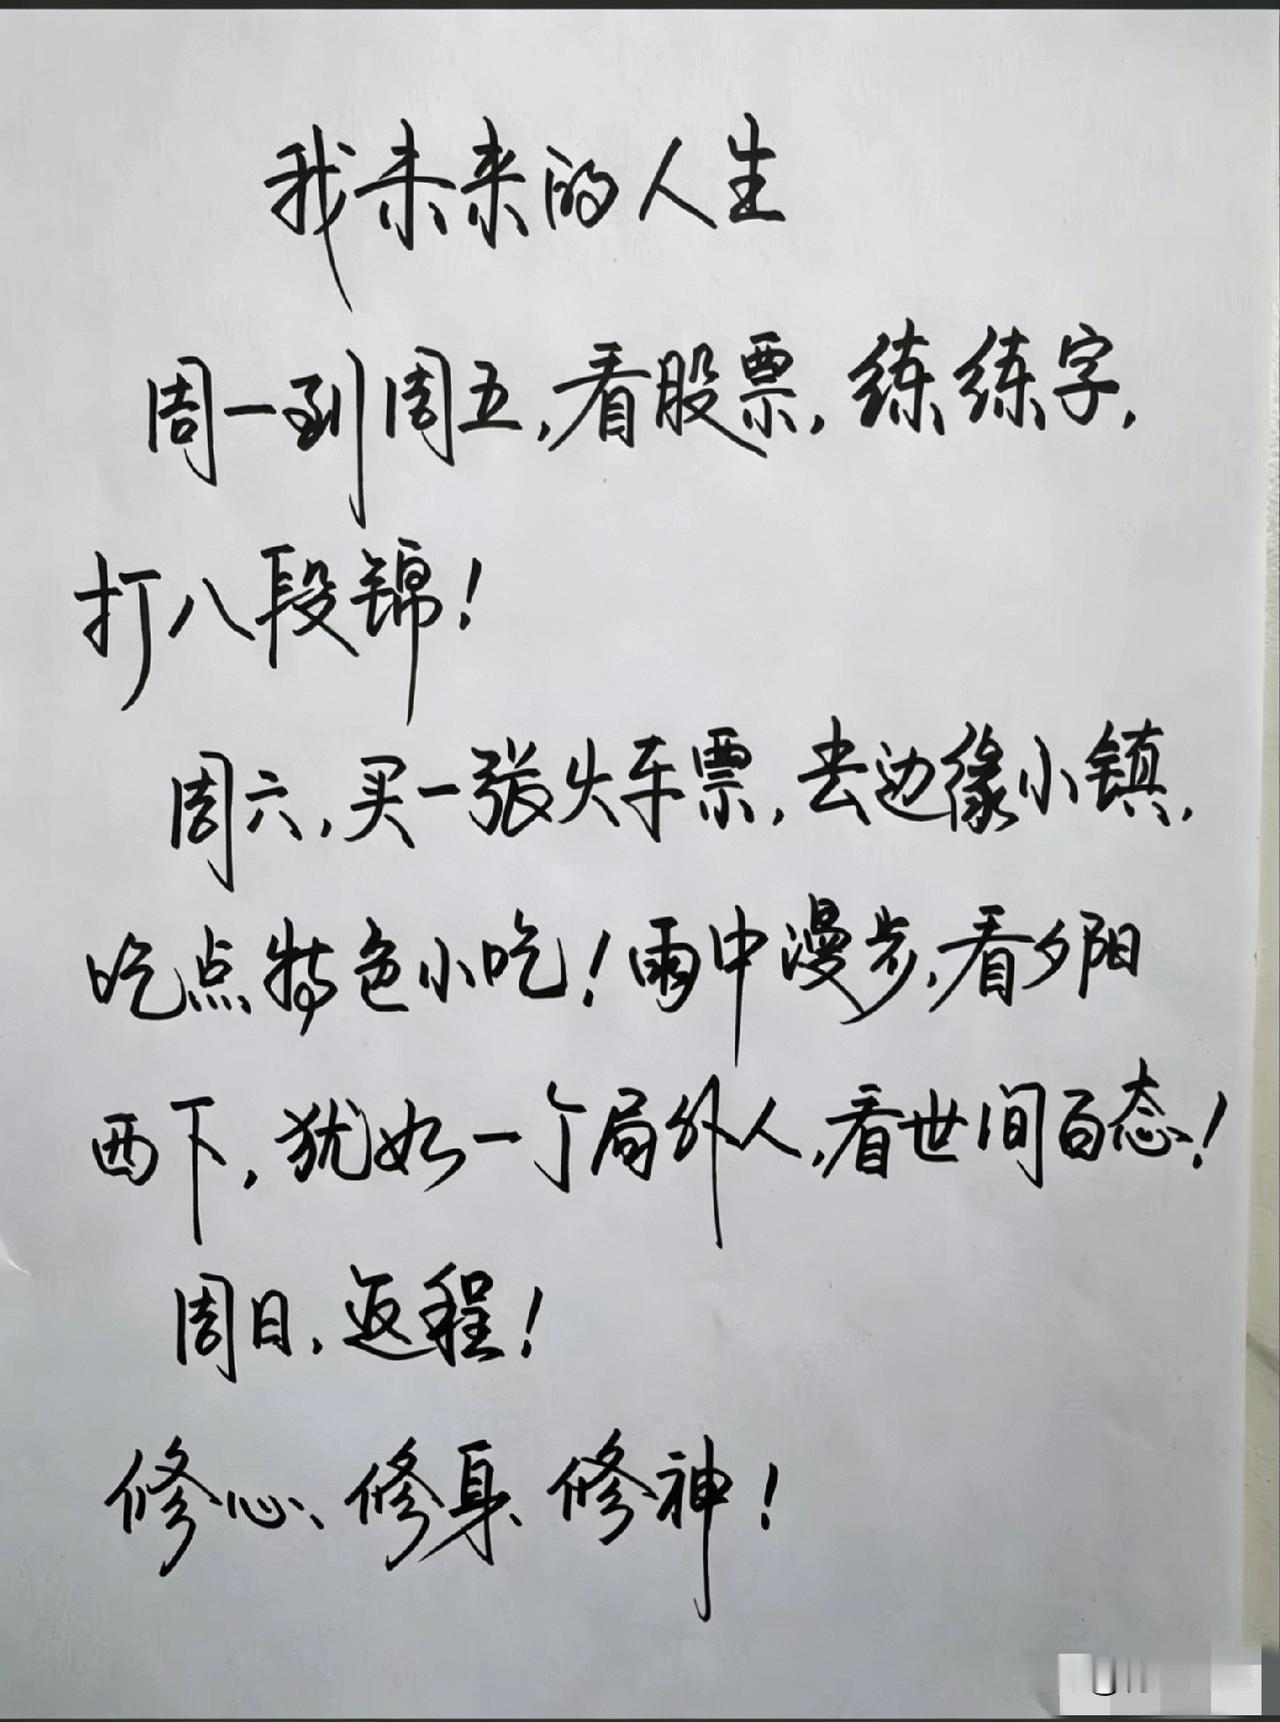 我未来的人生
周一到周五,看股票,练练字,
打八段锦!
周六,买一张火车票,去边缘小镇,
吃点特色小吃!雨中漫步,看夕阳
西下,犹如一个局外人,看世间百态!
周日,返程!
修心、修身、修神!